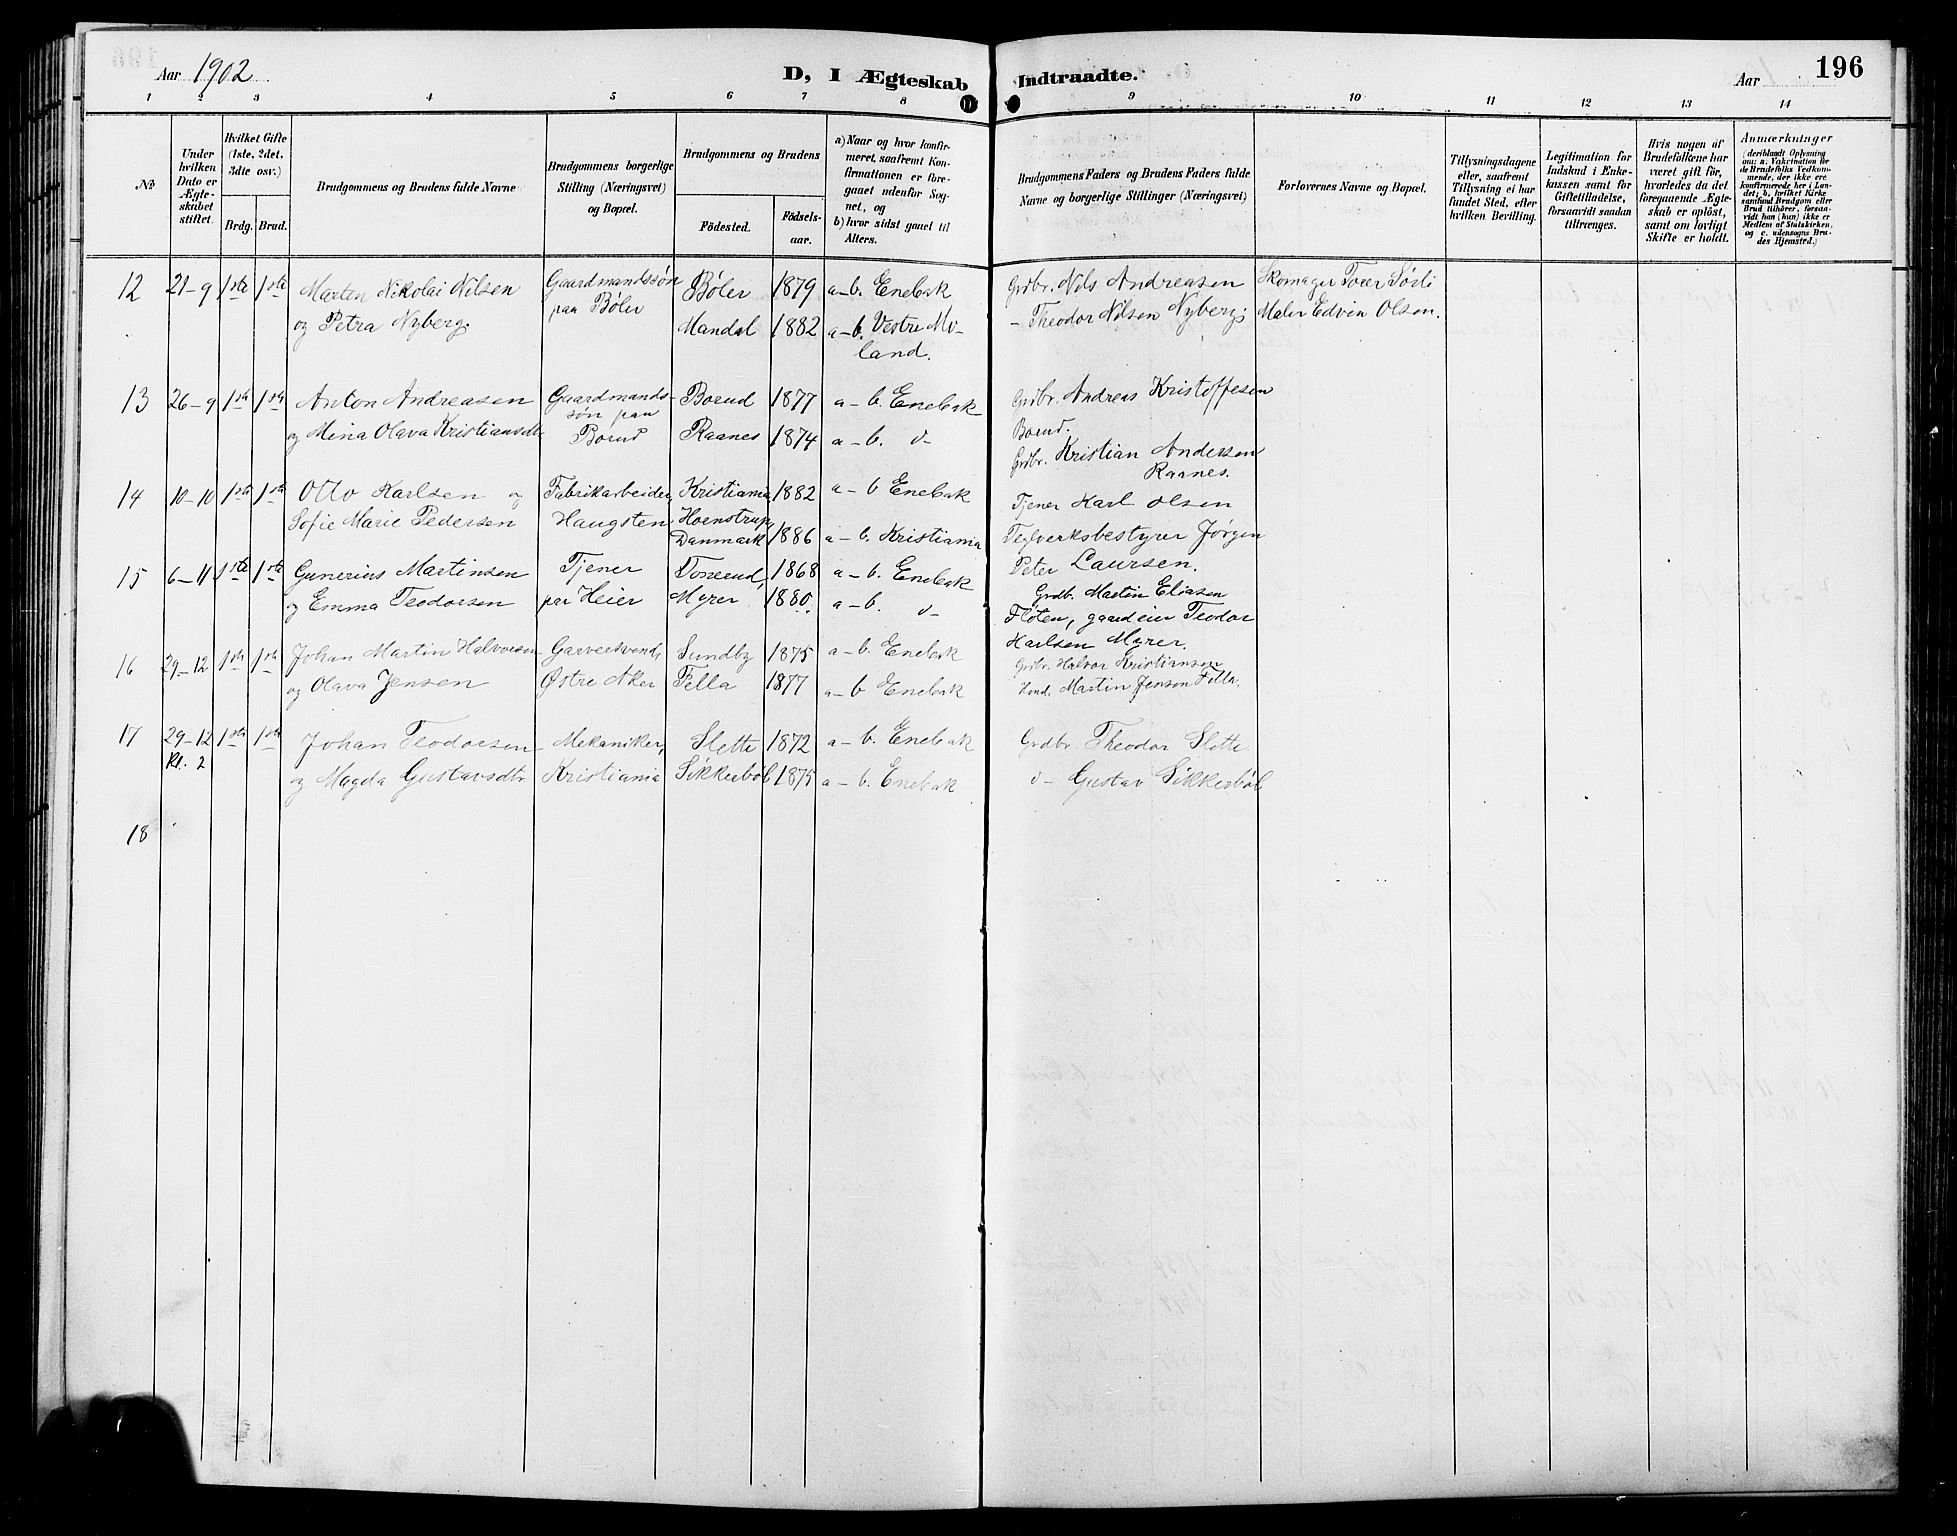 Aar 1902
D, I Ægteskab Indtraadte.
Aar
196
1 2 3 4 5 6 7 8 9 10 11 12 13 14
No
Under hvilken Dato er Ægteskabet stiftet.
Hvilket Gifte (1ste, 2det, 3die osv.)
Brdg. Brud.
Brudgommens og Brudens fulde Navne
Brudgommens borgerlige Stilling (Næringsvei) og Bopæl.
Brudgommens og Brudens
Födested. Födsels-aar.
a) Naar og hvor konfirmeret, saafremt Konfirmationen er foregaaet udenfor Sognet, og
b) hvor sidst gaaet til Alters.
Brudgommens Faders og Brudens Faders fulde Navne og borgerlige Stillinger (Næringsvei)
Forlovernes Navne og Bopæl.
Tillysningsdagene eller, saafremt Tillysning ei har fundet Sted, efter hvilken Bevilling.
Legitimation for Indskud i Enkekassen samt for Giftetilladelse, forsaavidt saadan tiltrænges.
Hvis nogen af Brudefolkene har været gift för, hvorledes da det foregaaende Ægteskab er oplöst, samt om lovligt Skifte er holdt.
Anmærkninger
(deriblandt Oplysning om: a. Vakcination for de Brudefolks Vedkommende, der ikke ere konfirmerede her i Landet; b. hvilket Kirkesamfund Brudgom eller Brud tilhörer, forsaavidt han (hun) ikke er Medlem af Statskirken, og c. udensogns Brudes Hjemsted.)
12 21-9 1ste 1ste Marten Nikolai Nilsen Gaardmandssøn Bøler 1879 a-b. Enebak Grdbr. Nils Andreasen Skomager Søsli
og Petra Nyberg. paa Bøler Mandal 1882 a-b. Vestre Mo- - Theodor Nilsen Nyberg; Maler Edvin Olsen.
land.
13 26-9 1ste 1ste Anton Andreasen Gaardmands- Borud 1877 a-b. Enebak Grdbr. Andreas Kristoffesen
søn paa Borud.
og Mina Olava Kristiansdtr Borud Raanes 1874 a-b. d- Grdbr. Kristian Anderssen
Raanes.
14 10-10 1ste 1ste Otto Karlsen og Fabrikarbeider, Kristiania 1882 a-b Enebak Tjener Karl Olsen
Sofie Marie Pedersen Haugsten Hoenstrup
Danmark 1886 a-b. Kristiania Teglverksbestyrer Jørgen
Peter Laursen.
15 6-11 1ste 1ste Gunerius Martinsen Tjener 1868 a-b. Enebak Grdb. Martin Eliasen
og Emma Teodorsen paa Heier Myrer 1880. a-b. d- Fløten, gaardeier Teodor
Karlsen Myrer.
16 29-12 1ste 1ste Johan Martin Halvorsen Garversvend, Sundby 1875 a-b. Enebak Grdbr. Halvor Kristiansen
og Olava Jensen Østre Aker Tella 1877 a-b Enebak Martin Jensen Tella.
17 29-12 1ste 1ste Johan Teodorsen Mekaniker, Slette 1872 a-b. Enebak Grdbr. Theodor Slette
Kl. 2 og Magda Gustavsdtr. Kristiania Sikkerbøl 1875 a-b. Enebak d- Gustav Sikkerbøl
18